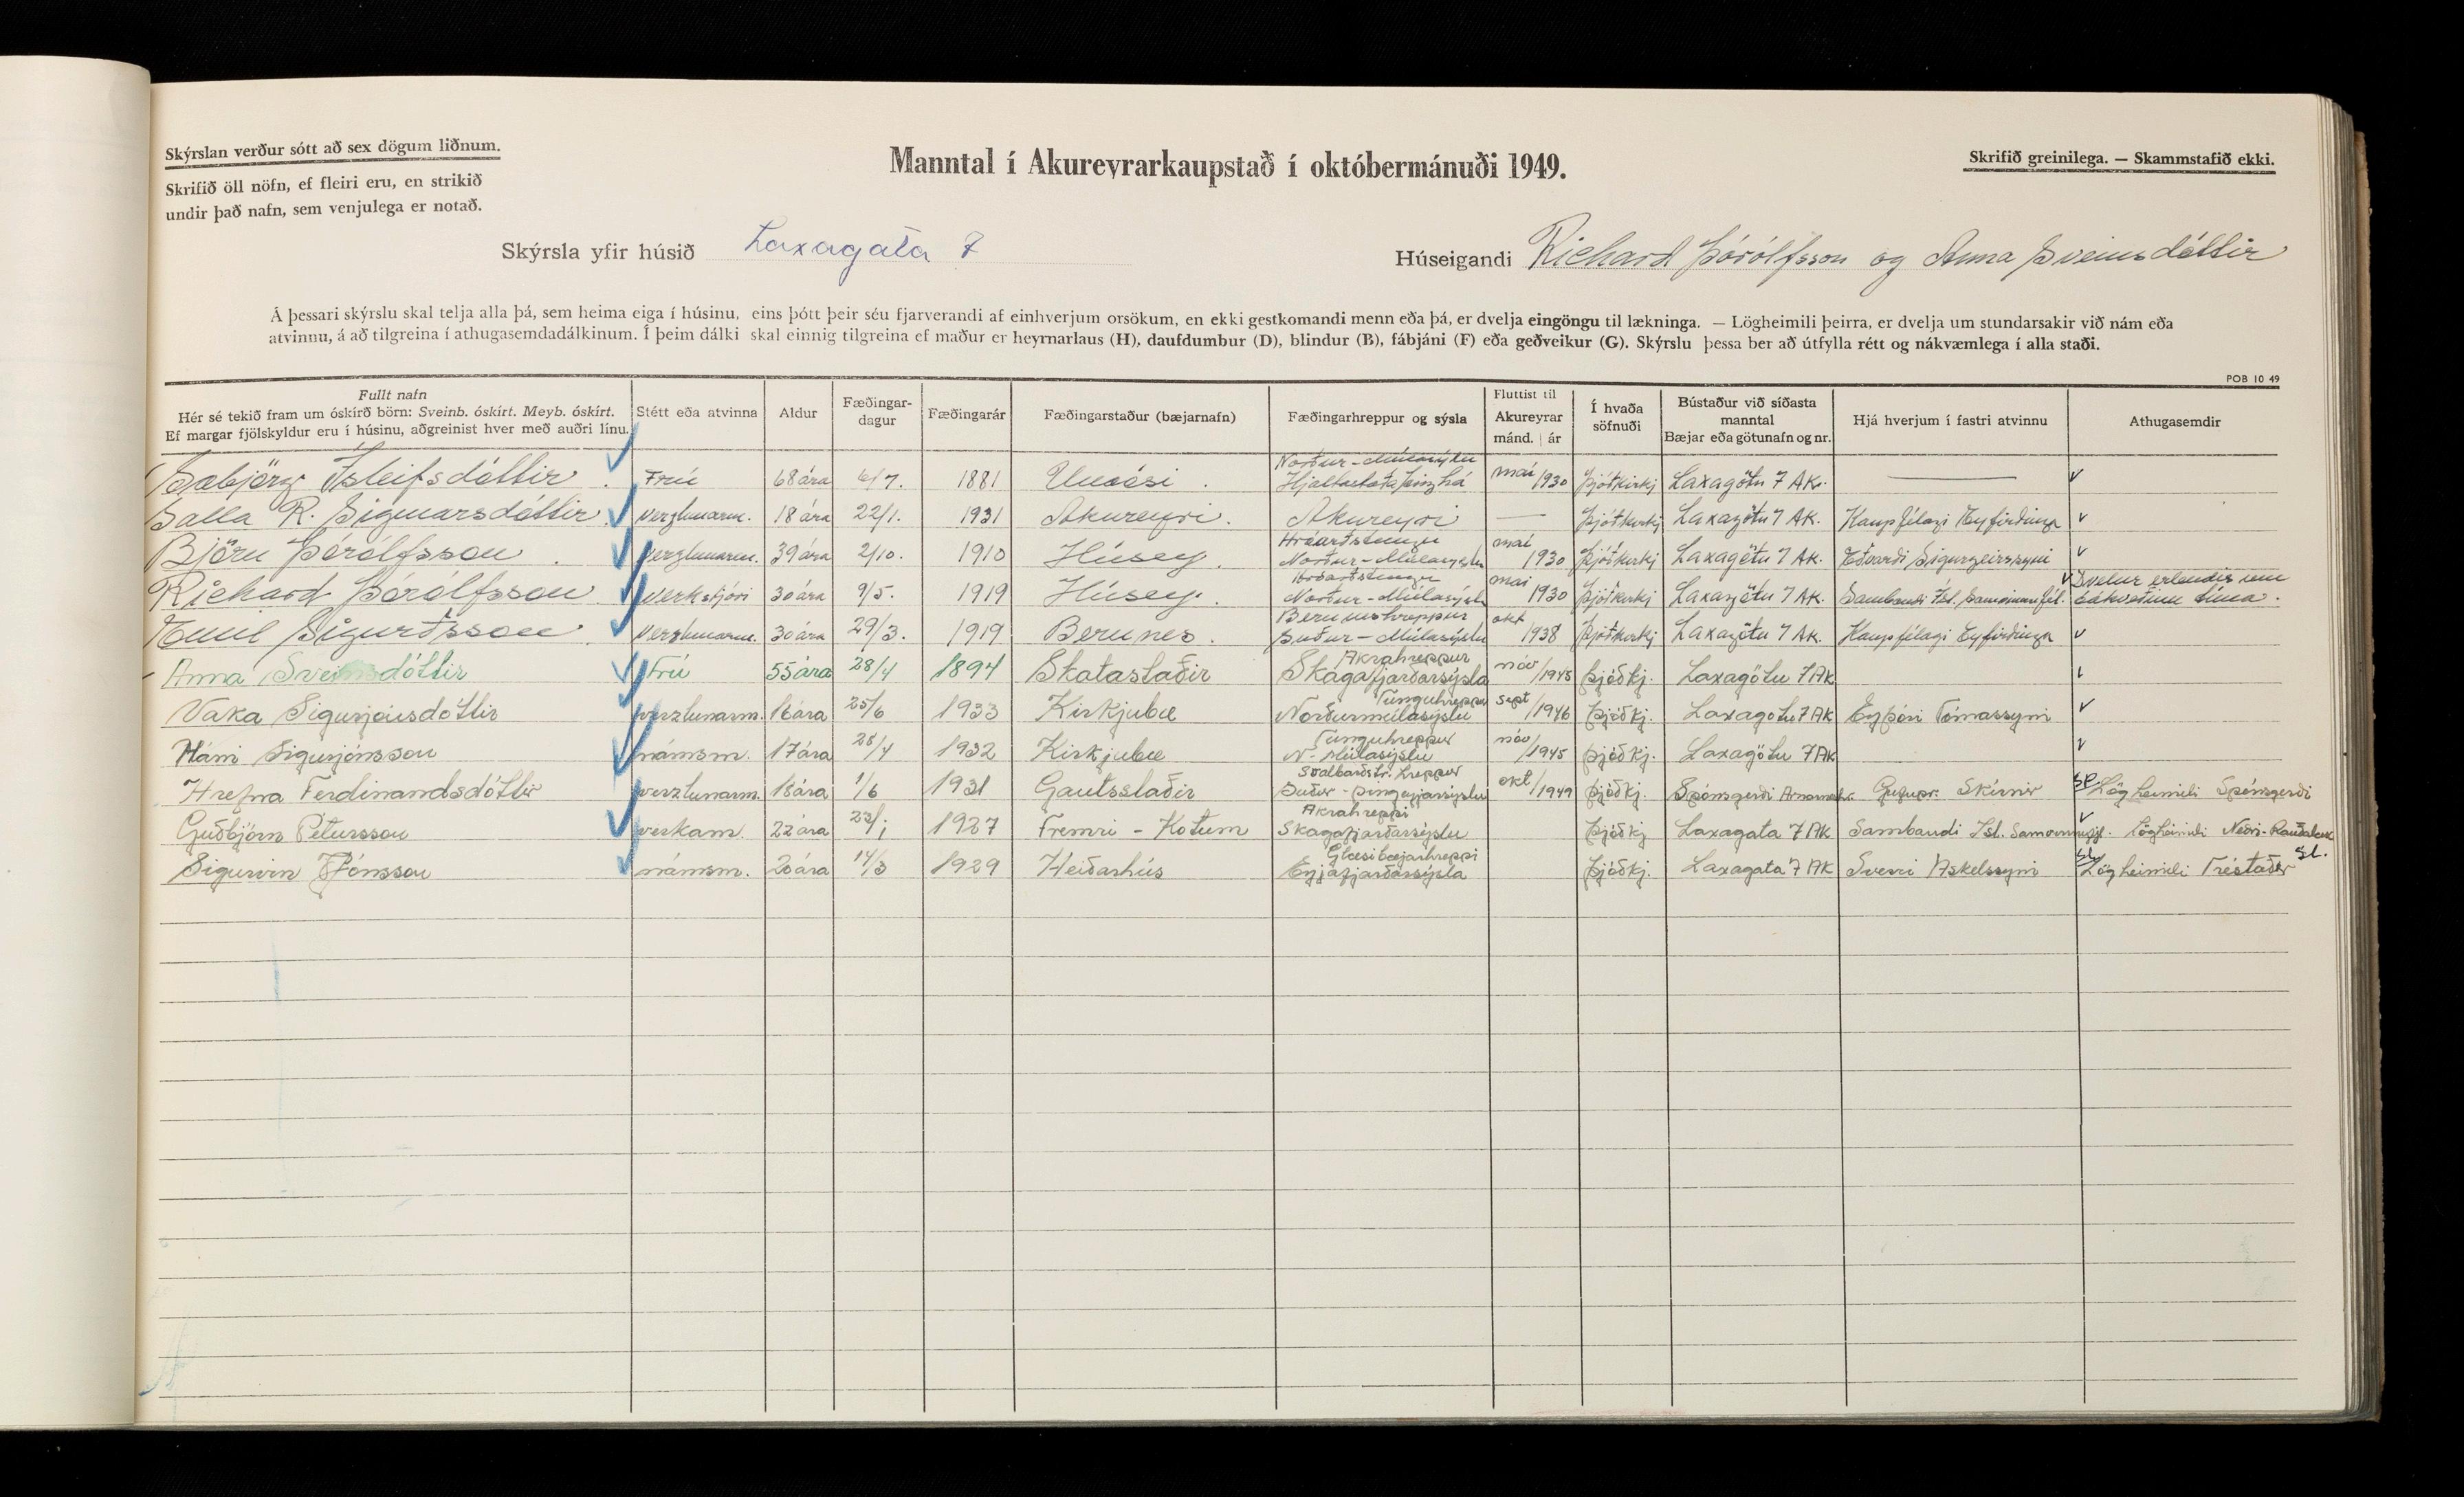 Skýrslan verður sótt að sex dögum liðnum.
Skrifið öll nöfn, ef fleiri eru, en strikið
undir það nafn, sem venjulega er notað.
Manntal í Akureyrarkaupstað í októbermánuði 1949.
Skrifið greinilega. — Skammstafið ekki.
Skýrsla yfir húsið Laxagata 7
Húseigandi Richard Þórólfsson og Anna Sveinsdóttir
Á þessari skýrslu skal telja alla þá, sem heima eiga í húsinu, eins þótt þeir séu fjarverandi af einhverjum orsökum, en ekki gestkomandi menn eða þá, er dvelja eingöngu til lækninga. — Lögheimili þeirra, er dvelja um stundarsakir við nám eða
atvinnu, á að tilgreina í athugasemdadálkinum. Í þeim dálki skal einnig tilgreina ef maður er heyrnarlaus (H), daufdumbur (D), blindur (B), fábjáni (F) eða geðveikur (G). Skýrslu þessa ber að útfylla rétt og nákvæmlega í alla staði.
POB 10 49
Fullt nafn
Hér sé tekið fram um óskírð börn: Sveinb. óskírt. Meyb. óskírt.
Ef margar fjölskyldur eru í húsinu, aðgreinist hver með auðri línu.
Stétt eða atvinna
Aldur
Fæðingar-
dagur
Fæðingarár
Fæðingarstaður (bæjarnafn)
Fæðingarhreppur og sýsla
Fluttist til
Akureyrar
mánd. | ár
Í hvaða
söfnuði
Bústaður við síðasta
manntal
Bæjar eða götunafn og nr.
Hjá hverjum í fastri atvinnu
Athugasemdir
Sæbjörg Ísleifsdóttir Frú 68 ára 6/7. 1881 Unaósi Norður-Múlasýslu Hjaltastaðaþinghá maí 1930 Þjóðkirkj Laxagötu 7 Ak. —
Salla R. Sigmarsdóttir Verzlunarm. 18 ára 22/1. 1931 Akureyri. Akureyri — Þjóðkirkj Laxagötu 7 Ak. Kaupfélagi Eyfirðinga
Björn Þórólfsson Verzlunarm. 39 ára 2/10. 1910 Húsey. Hróarstungu Norður-Múlasýslu maí 1930 Þjóðkirkj Laxagötu 7 Ak. Eðvarði Sigurgeirssyni
Richard Þórólfsson Verkstjóri 30 ára 9/5. 1919 Húsey. Hróarstungu Norður-Múlasýslu maí 1930 Þjóðkirkj Laxagötu 7 Ak. Sambandi Ísl. Samvinnufél. Dvelur erlendis um óákveðinn tíma.
Emil Sigurðsson Verzlunarm. 30 ára 29/3. 1919 Berunes. Beruneshreppur Suður-Múlasýslu okt 1938 Þjóðkirkj Laxagötu 7 Ak. Kaupfélagi Eyfirðinga
Anna Sveinsdóttir Frú 55 ára 28/4 1894 Skatastaðir Akrahreppur Skagafjarðarsýsla nóv/1945 Þjóðkj. Laxagötu 7 Ak
Vaka Sigurjónsdóttir verzlunarm. 16 ára 25/6 1933 Kirkjubæ Tunguhreppur Norðurmúlasýslu sept/1946 Þjóðkj. Laxagötu 7 Ak Eyþóri Tómassyni
Máni Sigurjónsson námsm. 17 ára 28/4 1932 Kirkjubæ Tunguhreppur N-Múlasýslu nóv/1945 Þjóðkj. Laxagötu 7 Ak
Hrefna Ferdinandsdóttir verzlunarm. 18 ára 1/6 1931 Gautsstaðir Svalbarðstr. hreppur Suður-Þingeyjarsýslu okt/1949 Þjóðkj. Spónsgerði Arnarneshr. Gufupr. Skírnir Lögheimili Spónsgerði
Guðbjörn Pétursson verkam. 22 ára 1927 Fremri-Kotum Akrahreppi Skagafjarðarsýslu Þjóðkj Laxagata 7 Ak Sambandi Ísl. Samvinnufjl. Lögheimili Neðri-Rauðalæk
Sigurvin Jónsson námsm. 20 ára 14/3 1929 Heiðarhús Glæsibæjarhreppi Eyjafjarðarsýsla Þjóðkj. Laxagata 7 Ak Sverri Áskelssyni Lögheimili Tréstaðir Sl.